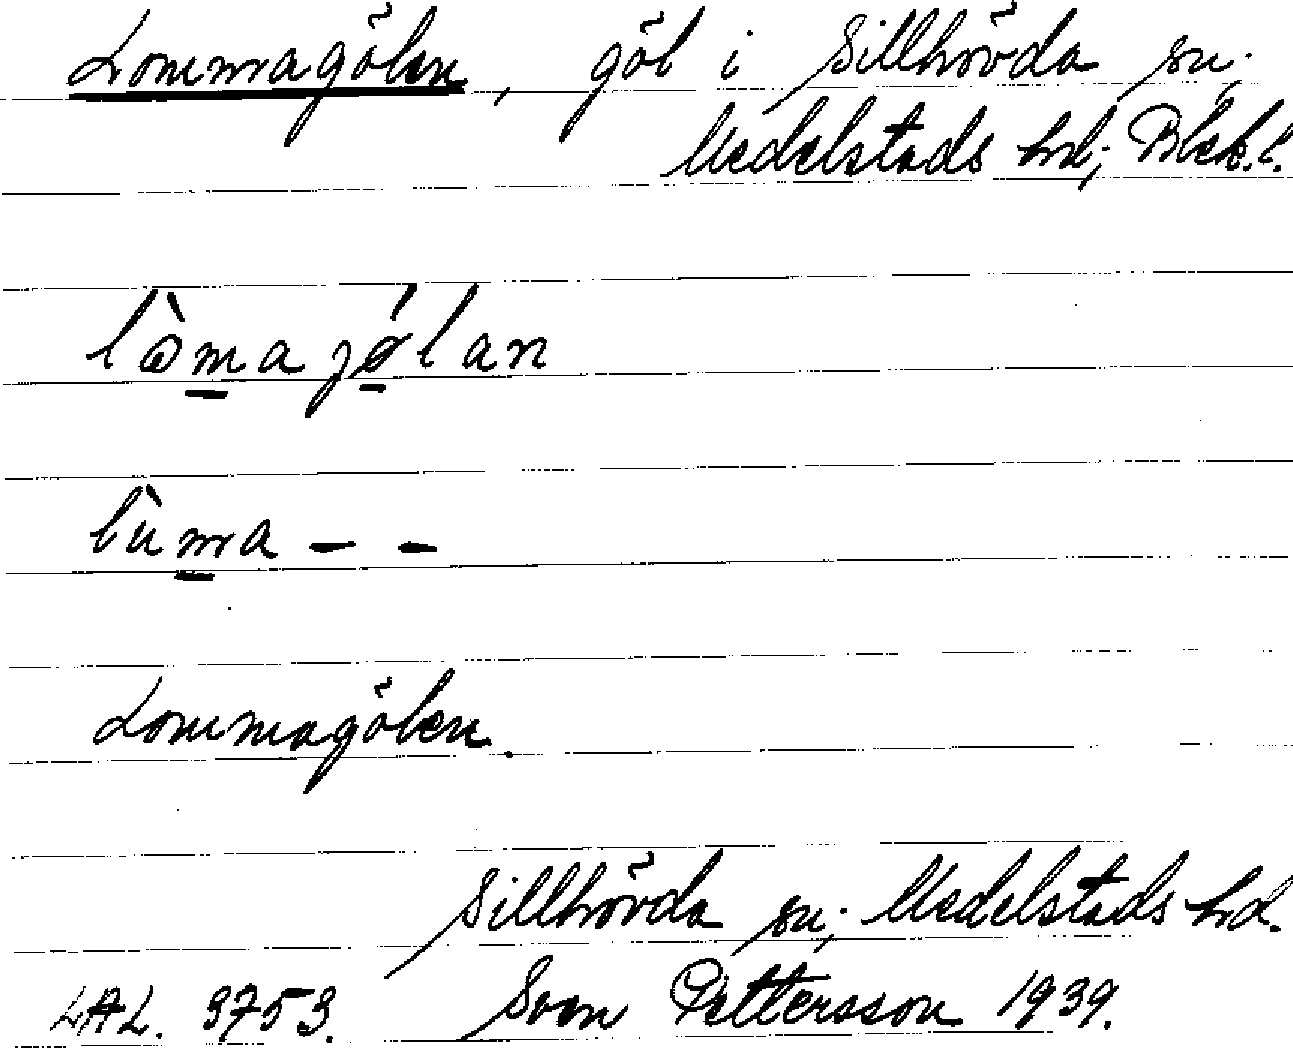 Lommagölen, göl i Sillhövda sn;
Medelstads hd; Blek.l.
lòmajǿlan
lùma – –
Lommagölen.
Sillhövda sn; Medelstads hd.
LAL. 3753. Sven Pettersson 1939.